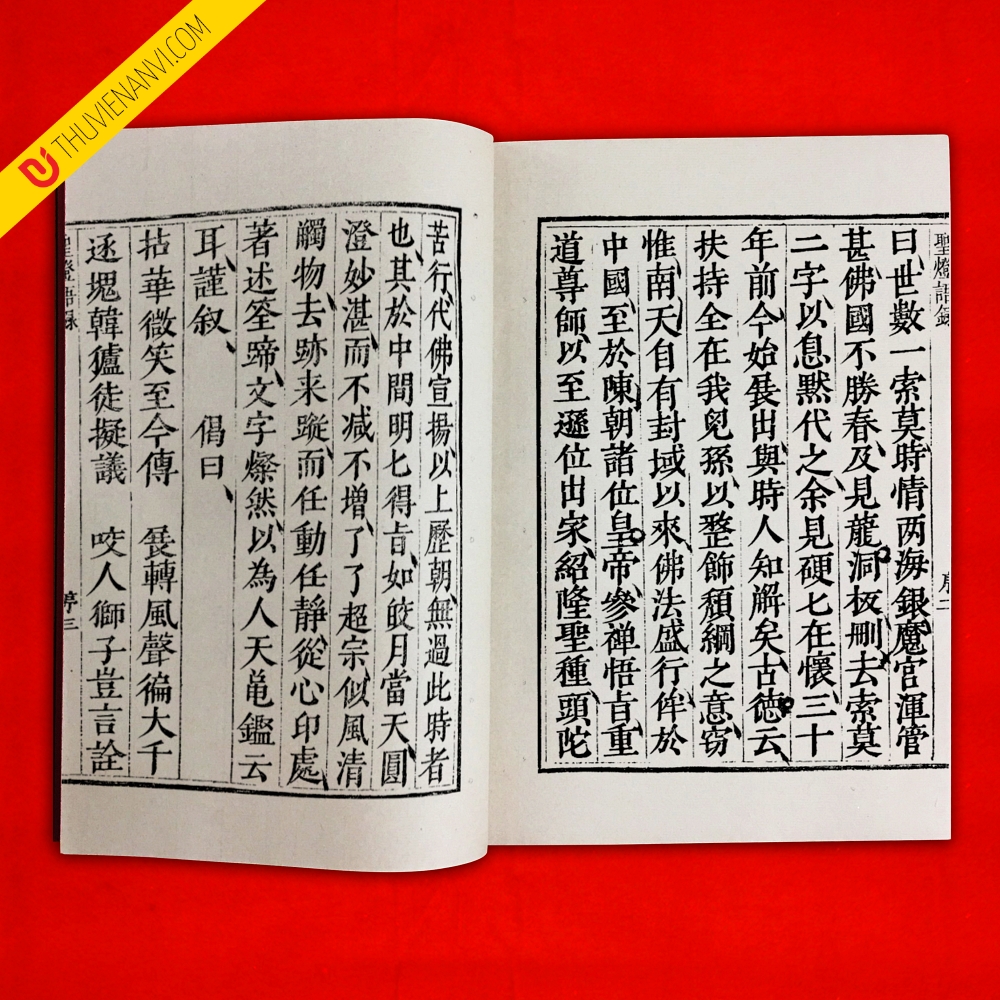 THUVIENANVI.COM
聖燈語錄
序二
曰世數一索莫時情两海銀魔宫渾管
甚佛國不勝春及見龍洞板刪去索莫
二字以息黙代之余見硬七在懷三十
年前今始展出與時人知解矣古德云
扶持全在我兒孫以整飾頽綱之意窃
惟南天自有封域以來佛法盛行侔於
中國至於陳朝諸位皇帝參禅悟旨重
道尊師以至遜位出家紹隆聖種頭陀
苦行代佛宣揚以上歷朝無過此時者
也其於中間明七得旨如皎月當天圓
澄妙湛而不减不增了了超宗似風清
觸物去跡来蹤而任動任靜從心印處
著述筌蹄文字燦然以為人天亀鑑云
耳謹叙 偈曰
拈華微笑至今傳 展轉風聲徧大千
逐塊韓獹徒擬議 咬人獅子豈言詮
聖燈語錄
序三